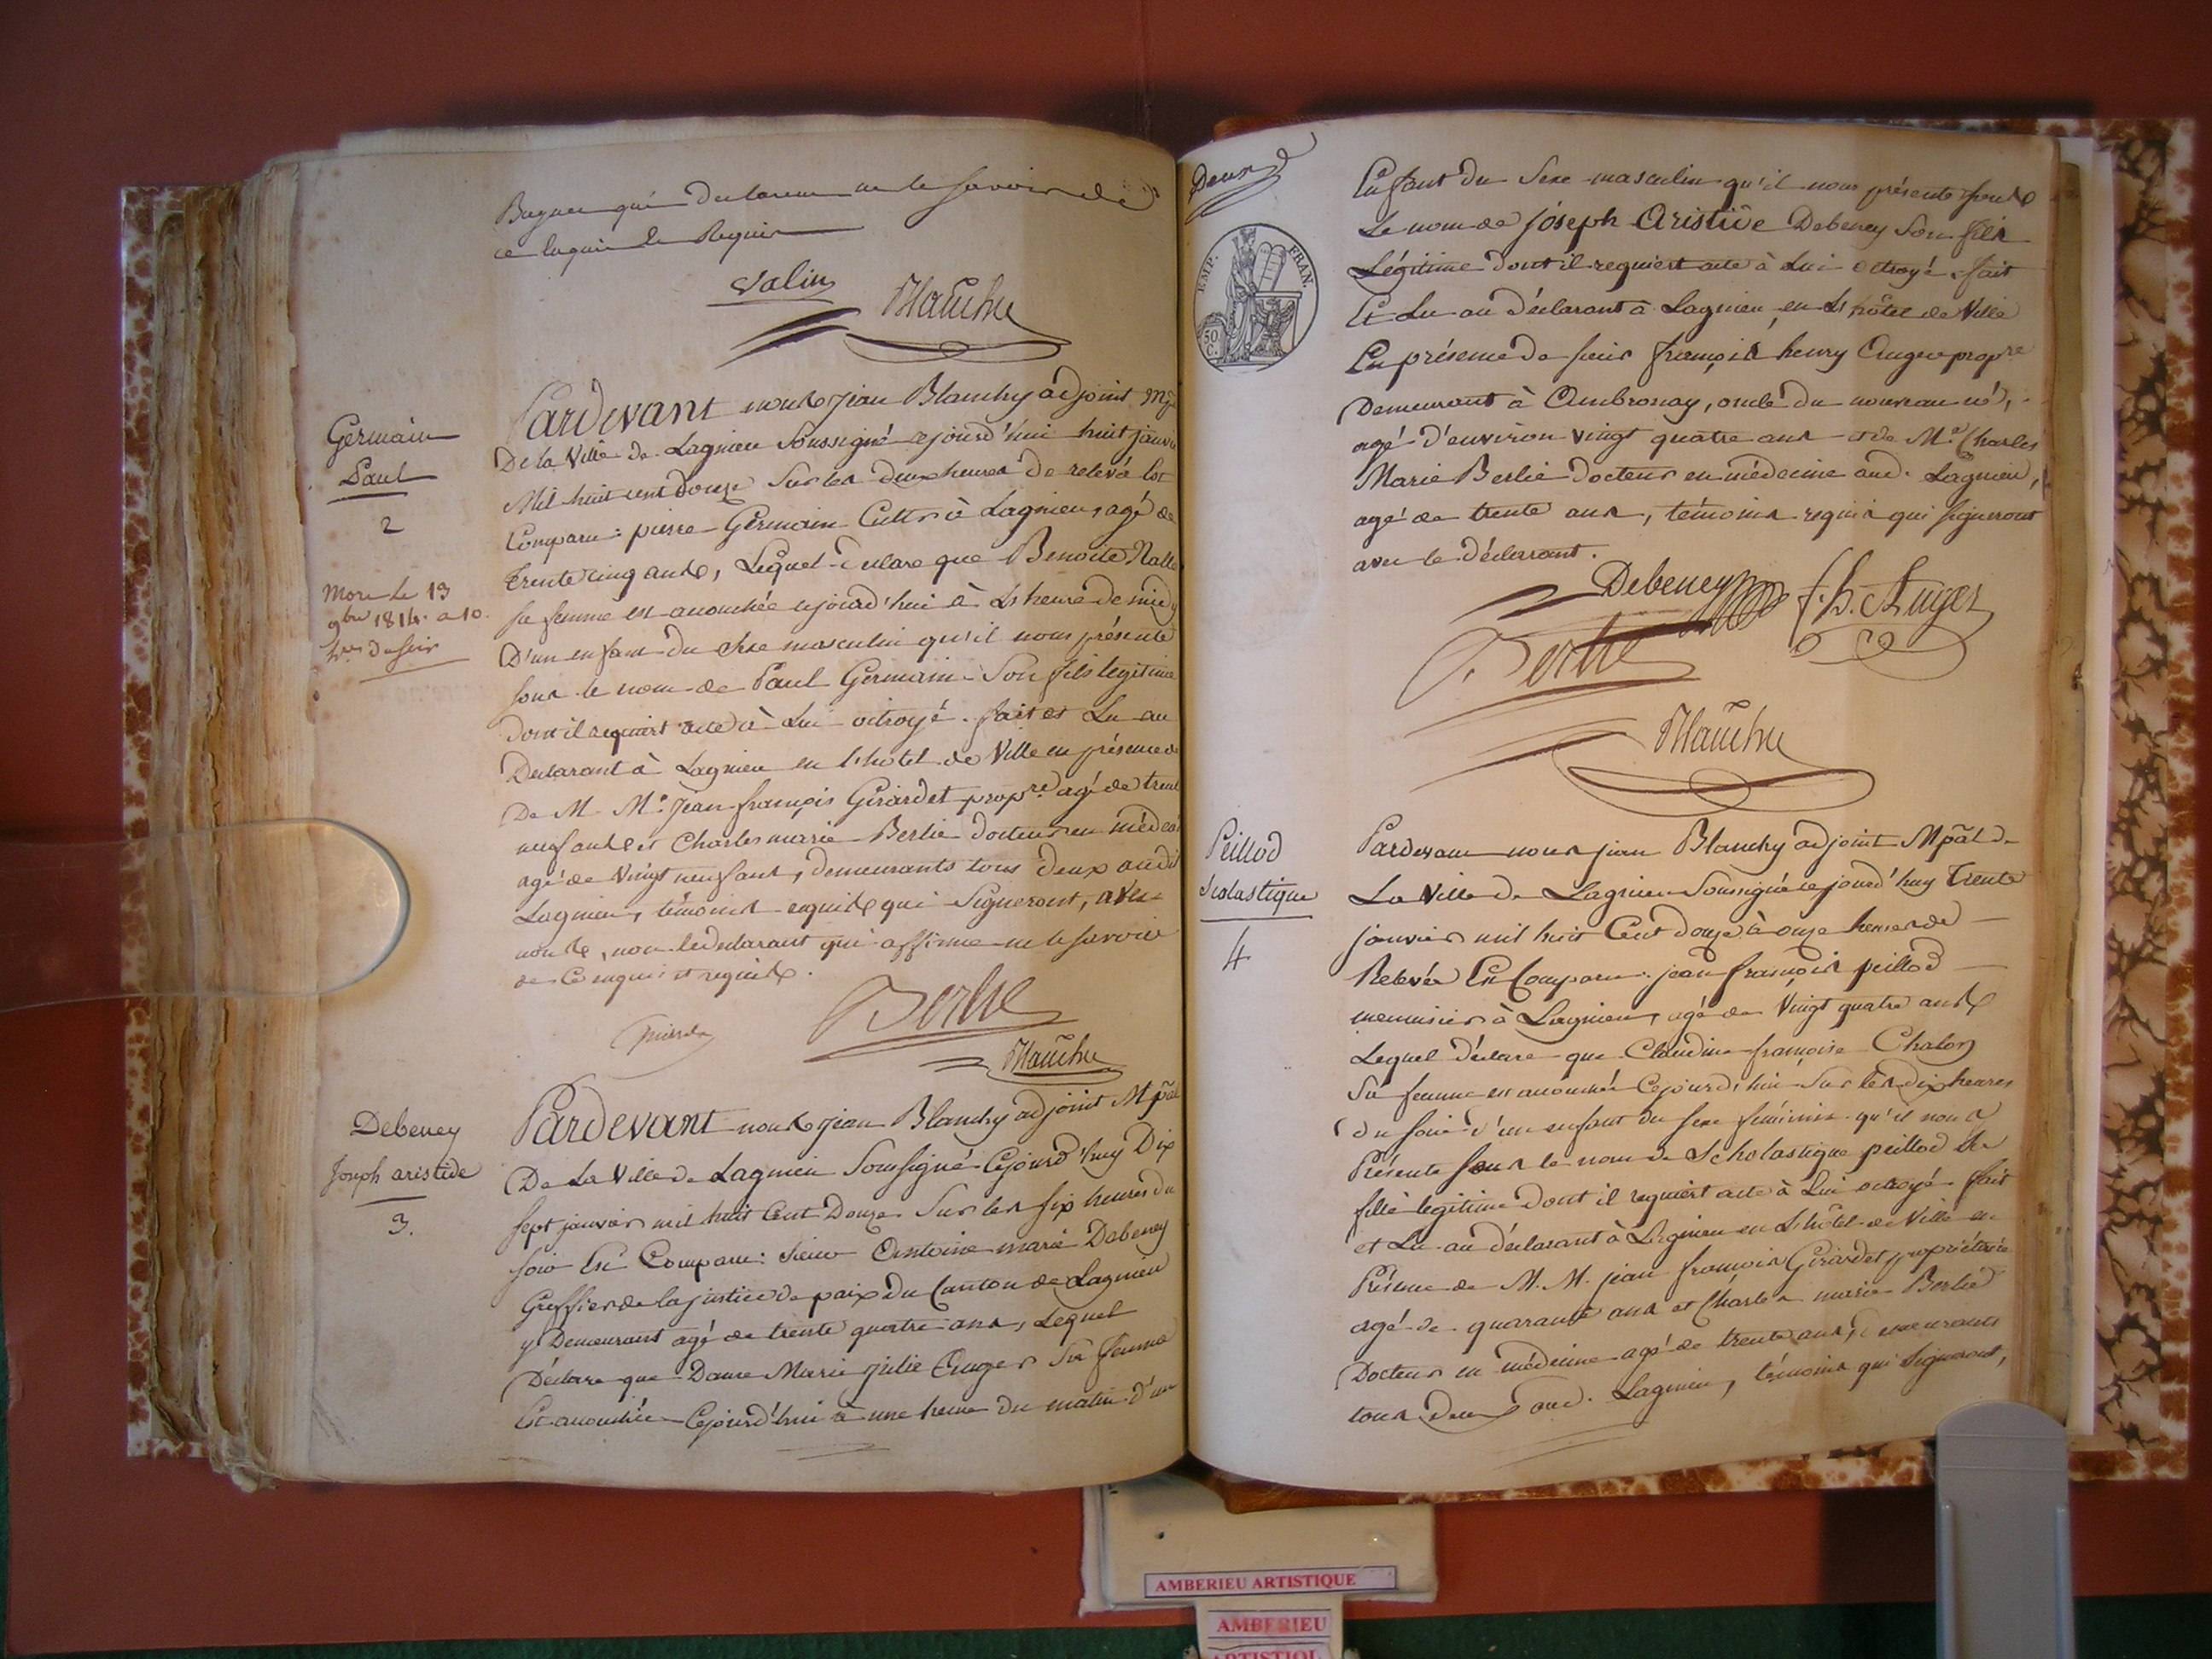 qui ne le savoir de
ce enquis et Requis
Valin
Blanchy
Germain
Paul
2
Mort le 13
9bre 1814. a 10.
hres du soir
Pardevant nous Jean Blanchy adjoint
De la Ville de Lagnieu soussigné cejourd'hui huit janvier
Mil huit cent douze sur les deux heures de relevé Est
Comparu : pierre Germain Cultr à Lagnieu, agé de
trente cinq ans, Lequel declare que Benoite
sa femme est accouchée cejourd'hui à Lheure de midy
D'un enfant du sexe masculin qu'il nous présente
sous le nom de Paul Germain Son fils legitime
dont il requiert acte à Lui octroyé. fait et Lu au
Declarant à Lagnieu en l'hôtel de Ville en présence de
De M. Me. Jean françois Girardet propre. agé de trente
neuf ans et Charles marie Berlie docteur en médecine
agé de Vingt neuf ans, demeurants tous deux audit
Lagnieu, témoins requis qui Signeront, avec
nous, non le declarant qui affirme ne le savoir
de ce enquis et requis.
Berlie
Blanchy
Debeney
Joseph aristide
3.
Pardevant nous Jean Blanchy adjoint Mpal
De La Ville de Lagnieu Soussigné Cejourd'huy Dix
sept janvier mil huit Cent Douze Sur les six heures du
soir Est Comparu : sieur Antoine marie Debeney
Greffier de la justice de paix du Canton de Lagnieu
y Demeurant agé de trente quatre ans, Lequel
Déclare que Dame Marie Julie Auger Sa femme
Est accouchée Cejourd'hui à une heure du matin d'un
Deux
EMP. FRAN.
50 C.
Enfant du Sexe masculin qu'il nous présente sous
Le nom de Joseph Aristide Debeney Son fils
Légitime dont il requiert acte à Lui octroyé. fait
Et Lu au déclarant à Lagnieu, en L'hôtel de Ville
En présence de sieur françois henry Auger propre
Demeurant à Ambronay, oncle du nouveau né,
agé d'environ vingt quatre ans et de Mr Charles
Marie Berlie docteur en médecine aud. Lagnieu,
agé de trente ans, témoins requis qui signeront
avec le déclarant.
Debeney
f. h. Auger
Berlie
Blanchy
Peillod
Scolastique
4
Pardevant nous jean Blanchy adjoint Mpal de
La Ville de Lagnieu Soussigné cejourd'huy Trente
janvier mil huit Cent douze à onze heures de
Relevée Est Comparu : jean françois peillod
menuisier à Lagnieu, agé de Vingt quatre ans
Lequel déclare que Claudine françoise Chalon
Sa femme est accouchée Cejourd'hui Sur les dix heures
du soir d'un enfant du sexe féminin qu'il nous
Présente sous le nom de Scholastique peillod sa
fille legitime dont il requiert acte à Lui octroyé fait
et Lu au déclarant à Lagnieu en L'hôtel de Ville en
Présence de M. M. jean françois Girardet propriétaire
agé de quarante ans et Charles marie Berlie
Docteur en médecine agé de trente ans, demeurants
tous deux aud. Lagnieu, témoins qui signeront,
AMBERIEU ARTISTIQUE
AMBERIEU
ARTISTIQUE